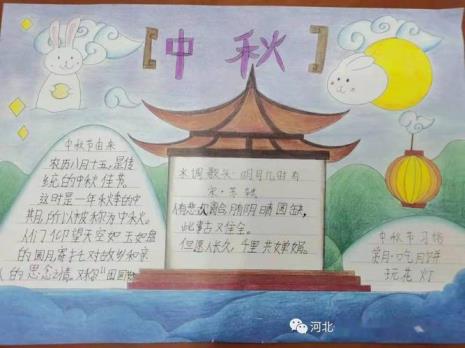 [中秋]
中秋节由来
农历八月十五,是传
统的中秋佳节,
这时是一年秋季的中
期,所以被称为中秋。
人们仰望天空如玉如盘
的圆月,寄托对故乡和亲
人的思念之情,又称“团圆
水调歌头·明月几时有
宋·苏轼
人有悲欢离合,月有阴晴圆缺,
此事古难全。
但愿人长久,千里共婵娟。
中秋节习俗
赏月·吃月饼
玩花灯
河北